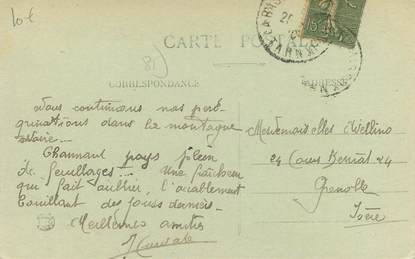 10 €
81
CARTE POSTALE
CORRESPONDANCE
ADRESSE
TARN
Nous continuons nos péré-
grinations dans la montagne
Charmant pays plein
de feuillages... une fraîcheur
qui fait oublier l'accablement
bouillant des jours derniers
Meilleures amitiés
Mesdemoiselles Avellino
24 Cours Berriat 24
Grenoble
Isère